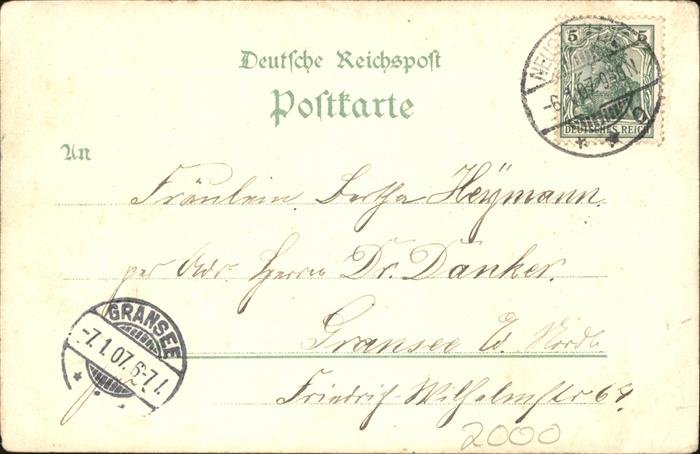 Deutsche Reichspost
Postkarte
5 5
DEUTSCHES REICH
-6.1.07
An
Fräulein Bertha Heÿmann.
per Adr. Herrn Dr. Danker.
Gransee
Friedrich-Wilhelmstr 67.
GRANSEE
-7.1.07. 6-7 V.
2000